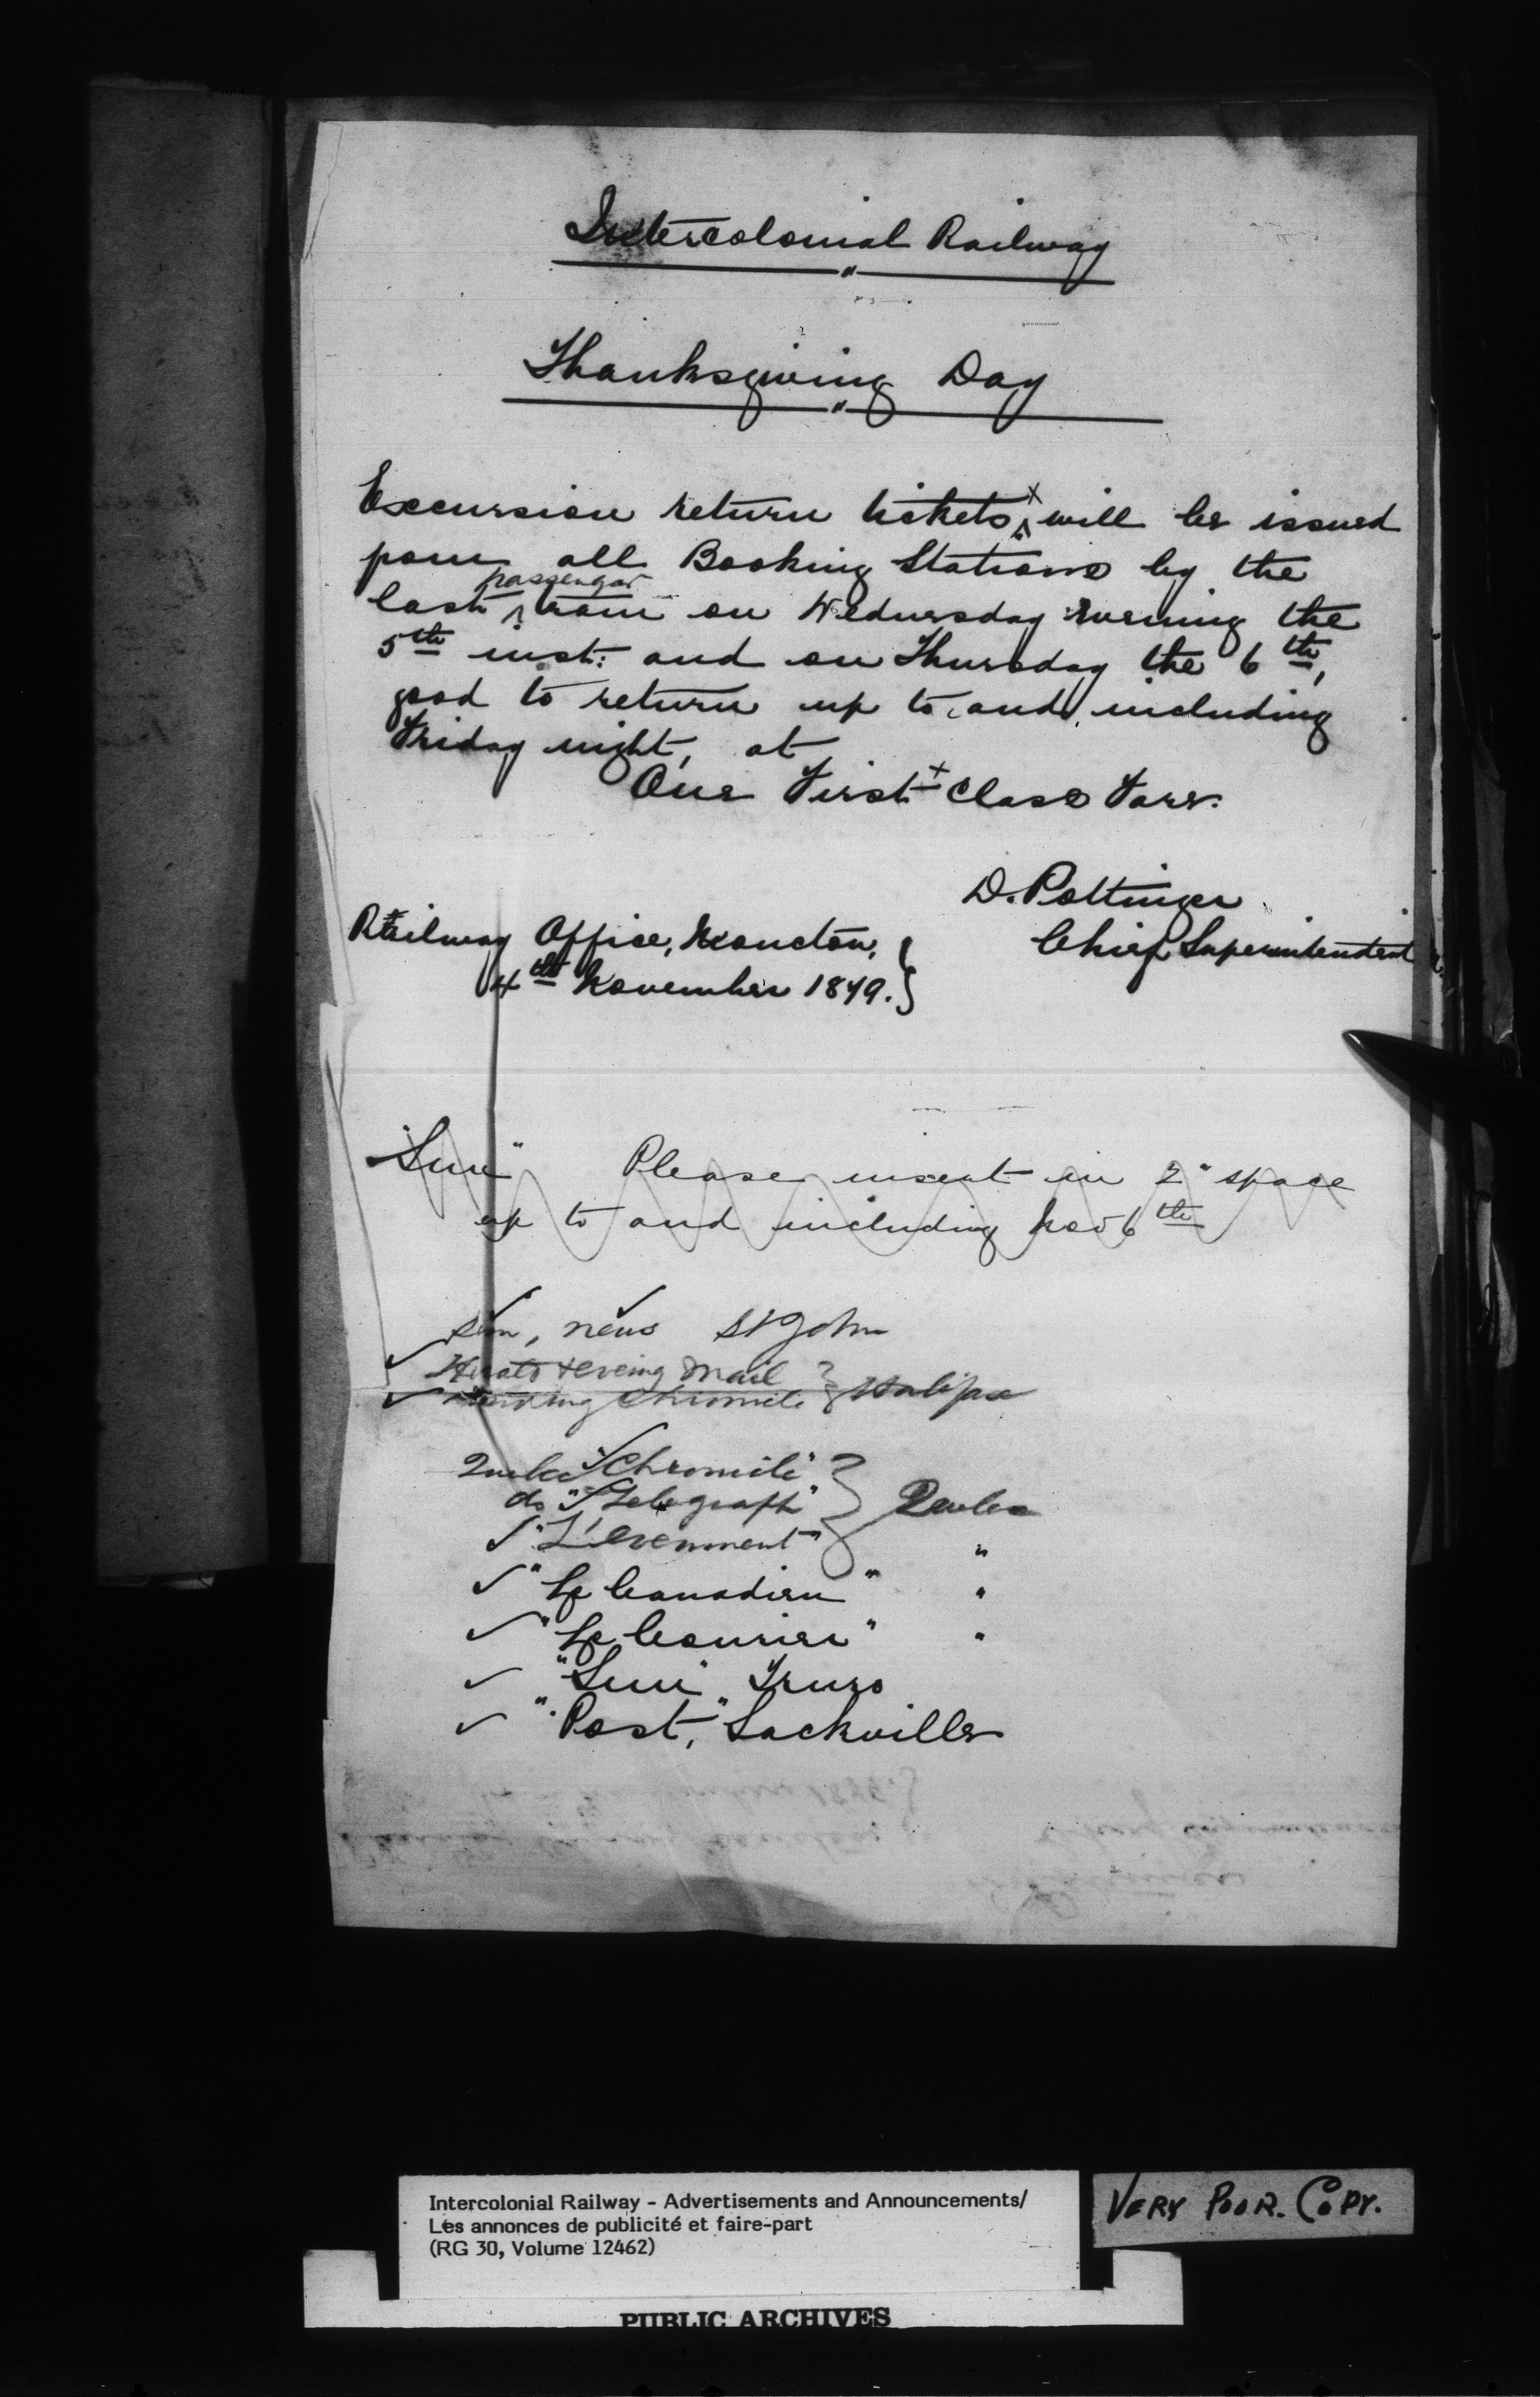 Intercolonial Railway
"
Thanksgiving Day
"
Excursion return tickets x will be issued
from all Booking Stations by the
passenger
last train on Wednesday evening the
5th inst: and on Thursday the 6th,
good to return up to and including
Friday night, at
One First + Class Fare.
D. Pottinger
Chief Superintendent
Railway Office, Moncton, }
4th November 1879. }
"Sun" Please insert in 2" space
up to and including Nov 6th
✓ ✓
Sun, News St John
✓ Herald & Eveing Mail }
✓ Morning Chronicle } Halifax
Quebec ✓ "Chronicle" }
do ✓ "Telegraph" } Quebec
✓ "L'evenment" } "
✓ "Le Canadien" "
✓ "Le Courier" "
✓ "Sun" Truro
✓ "Post," Sackville
Intercolonial Railway - Advertisements and Announcements/
Les annonces de publicité et faire-part
(RG 30, Volume 12462)
VERY POOR. COPY.
PUBLIC ARCHIVES